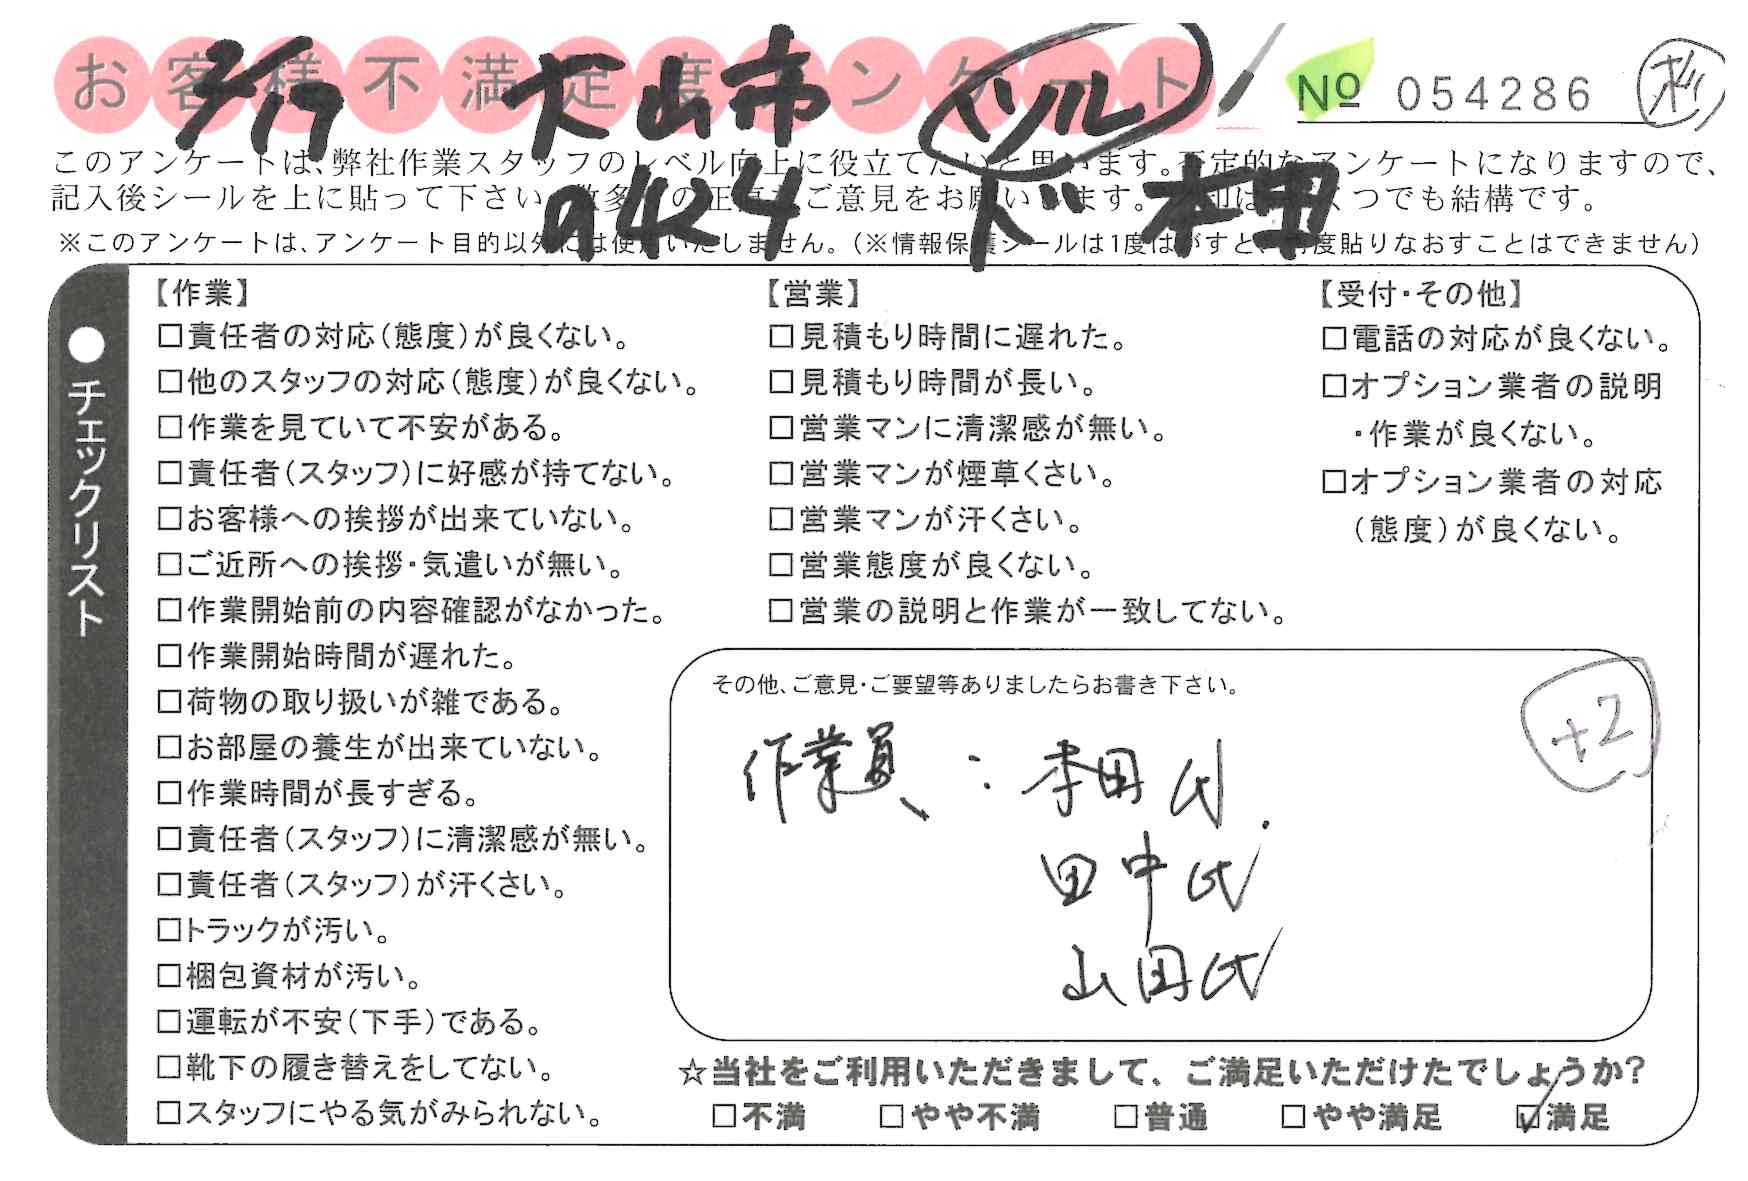 お客様不満足度アンケート
No 054286
2/19 犬山市 ソル
a424 ド 本田
このアンケートは、弊社作業スタッフのレベル向上に役立てたいと思います。否定的なアンケートになりますので、
記入後シールを上に貼って下さい。数多くの正直なご意見をお願いします。〆印はいくつでも結構です。
※このアンケートは、アンケート目的以外には使用いたしません。(※情報保護シールは1度はがすと、再度貼りなおすことはできません)
●チェックリスト
【作業】
□責任者の対応(態度)が良くない。
□他のスタッフの対応(態度)が良くない。
□作業を見ていて不安がある。
□責任者(スタッフ)に好感が持てない。
□お客様への挨拶が出来ていない。
□ご近所への挨拶・気遣いが無い。
□作業開始前の内容確認がなかった。
□作業開始時間が遅れた。
□荷物の取り扱いが雑である。
□お部屋の養生が出来ていない。
□作業時間が長すぎる。
□責任者(スタッフ)に清潔感が無い。
□責任者(スタッフ)が汗くさい。
□トラックが汚い。
□梱包資材が汚い。
□運転が不安(下手)である。
□靴下の履き替えをしてない。
□スタッフにやる気がみられない。
【営業】
□見積もり時間に遅れた。
□見積もり時間が長い。
□営業マンに清潔感が無い。
□営業マンが煙草くさい。
□営業マンが汗くさい。
□営業態度が良くない。
□営業の説明と作業が一致してない。
【受付・その他】
□電話の対応が良くない。
□オプション業者の説明
・作業が良くない。
□オプション業者の対応
(態度)が良くない。
その他、ご意見・ご要望等ありましたらお書き下さい。
+2
作業員、:本田氏.
田中氏
山田氏
☆当社をご利用いただきまして、ご満足いただけたでしょうか?
□不満 □やや不満 □普通 □やや満足 ☑満足